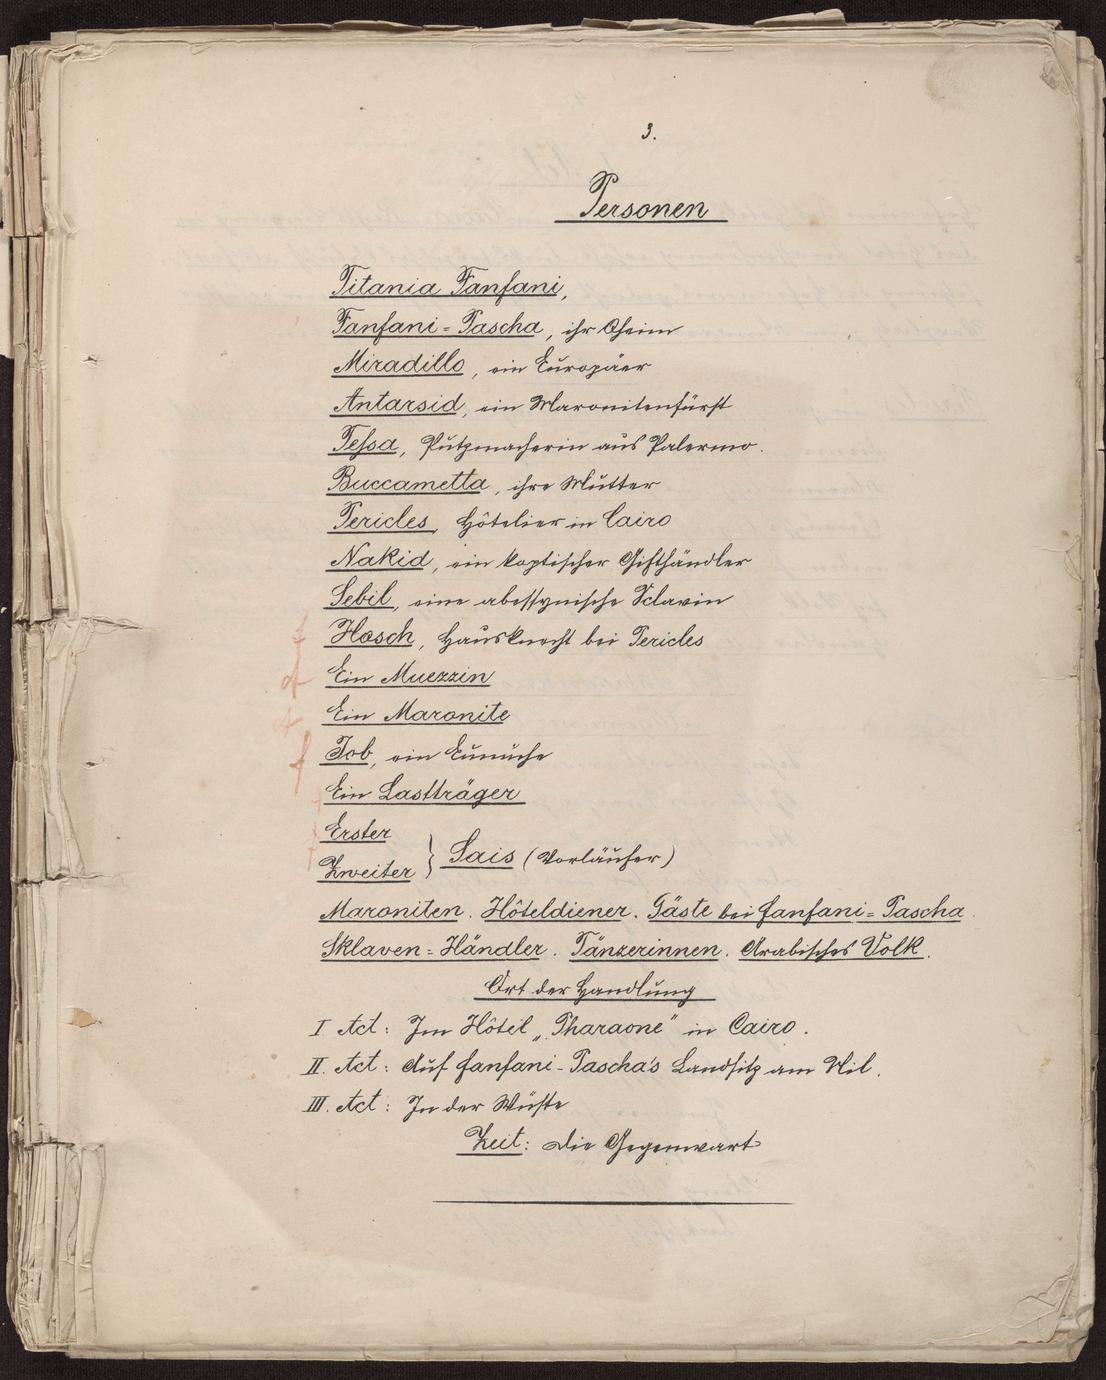 3.
Personen
Titania Fanfani,
Fanfani=Pascha, ihr Oheim
Miradillo, ein Europäer
Antarsid, ein Maronitenfürst
Teſsa, Putzmacherin aus Palermo.
Buccametta, ihre Mutter
Pericles, Hôtelier in Cairo
Nakid, ein koptischer Gifthändler
Sebil, eine abessynische Sclavin
Hosch, Hausknecht bei Pericles
Ein Muezzin
Ein Maronite
Job, ein Eunuche
Ein Lastträger
Erster
Zweiter } Sais (Vorläufer)
Maroniten. Hôteldiener. Gäste bei Fanfani=Pascha.
Sklaven=Händler. Tänzerinnen. Arabisches Volk.
Ort der Handlung
I Act: Im Hôtel „Pharaone" in Cairo.
II. Act: Auf Fanfani-Pascha's Landsitz am Nil.
III. Act: In der Wüste
Zeit: Die Gegenwart